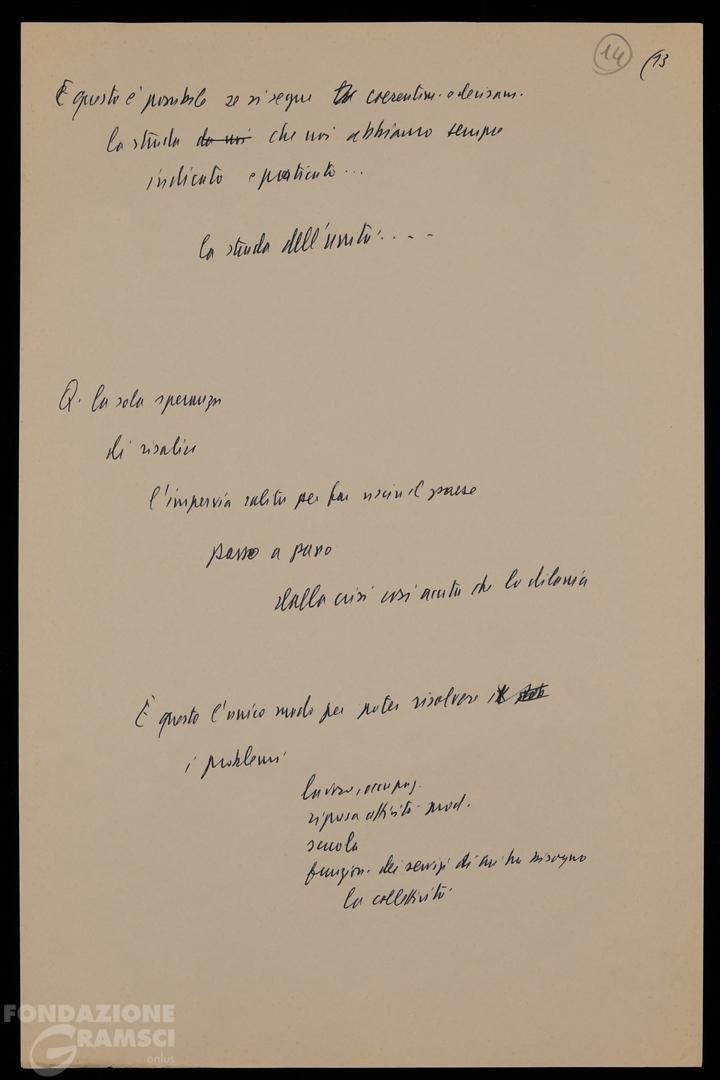 14 (13
È questo è possibile se si segue coerentem. e decisam.
la strada da noi che noi abbiamo sempre
indicato e praticato...
la strada dell'unità.....
Q. la sola speranza
di risalire
l'impervia salita per far uscire il paese
passo a passo
dalla crisi così acuta che lo dilania
È questo l'unico modo per poter risolvere
i problemi
lavoro, occupaz.
ripresa attività prod.
scuola
funzion. dei servizi di cui ha bisogno
la collettività
FONDAZIONE
GRAMSCI
onlus